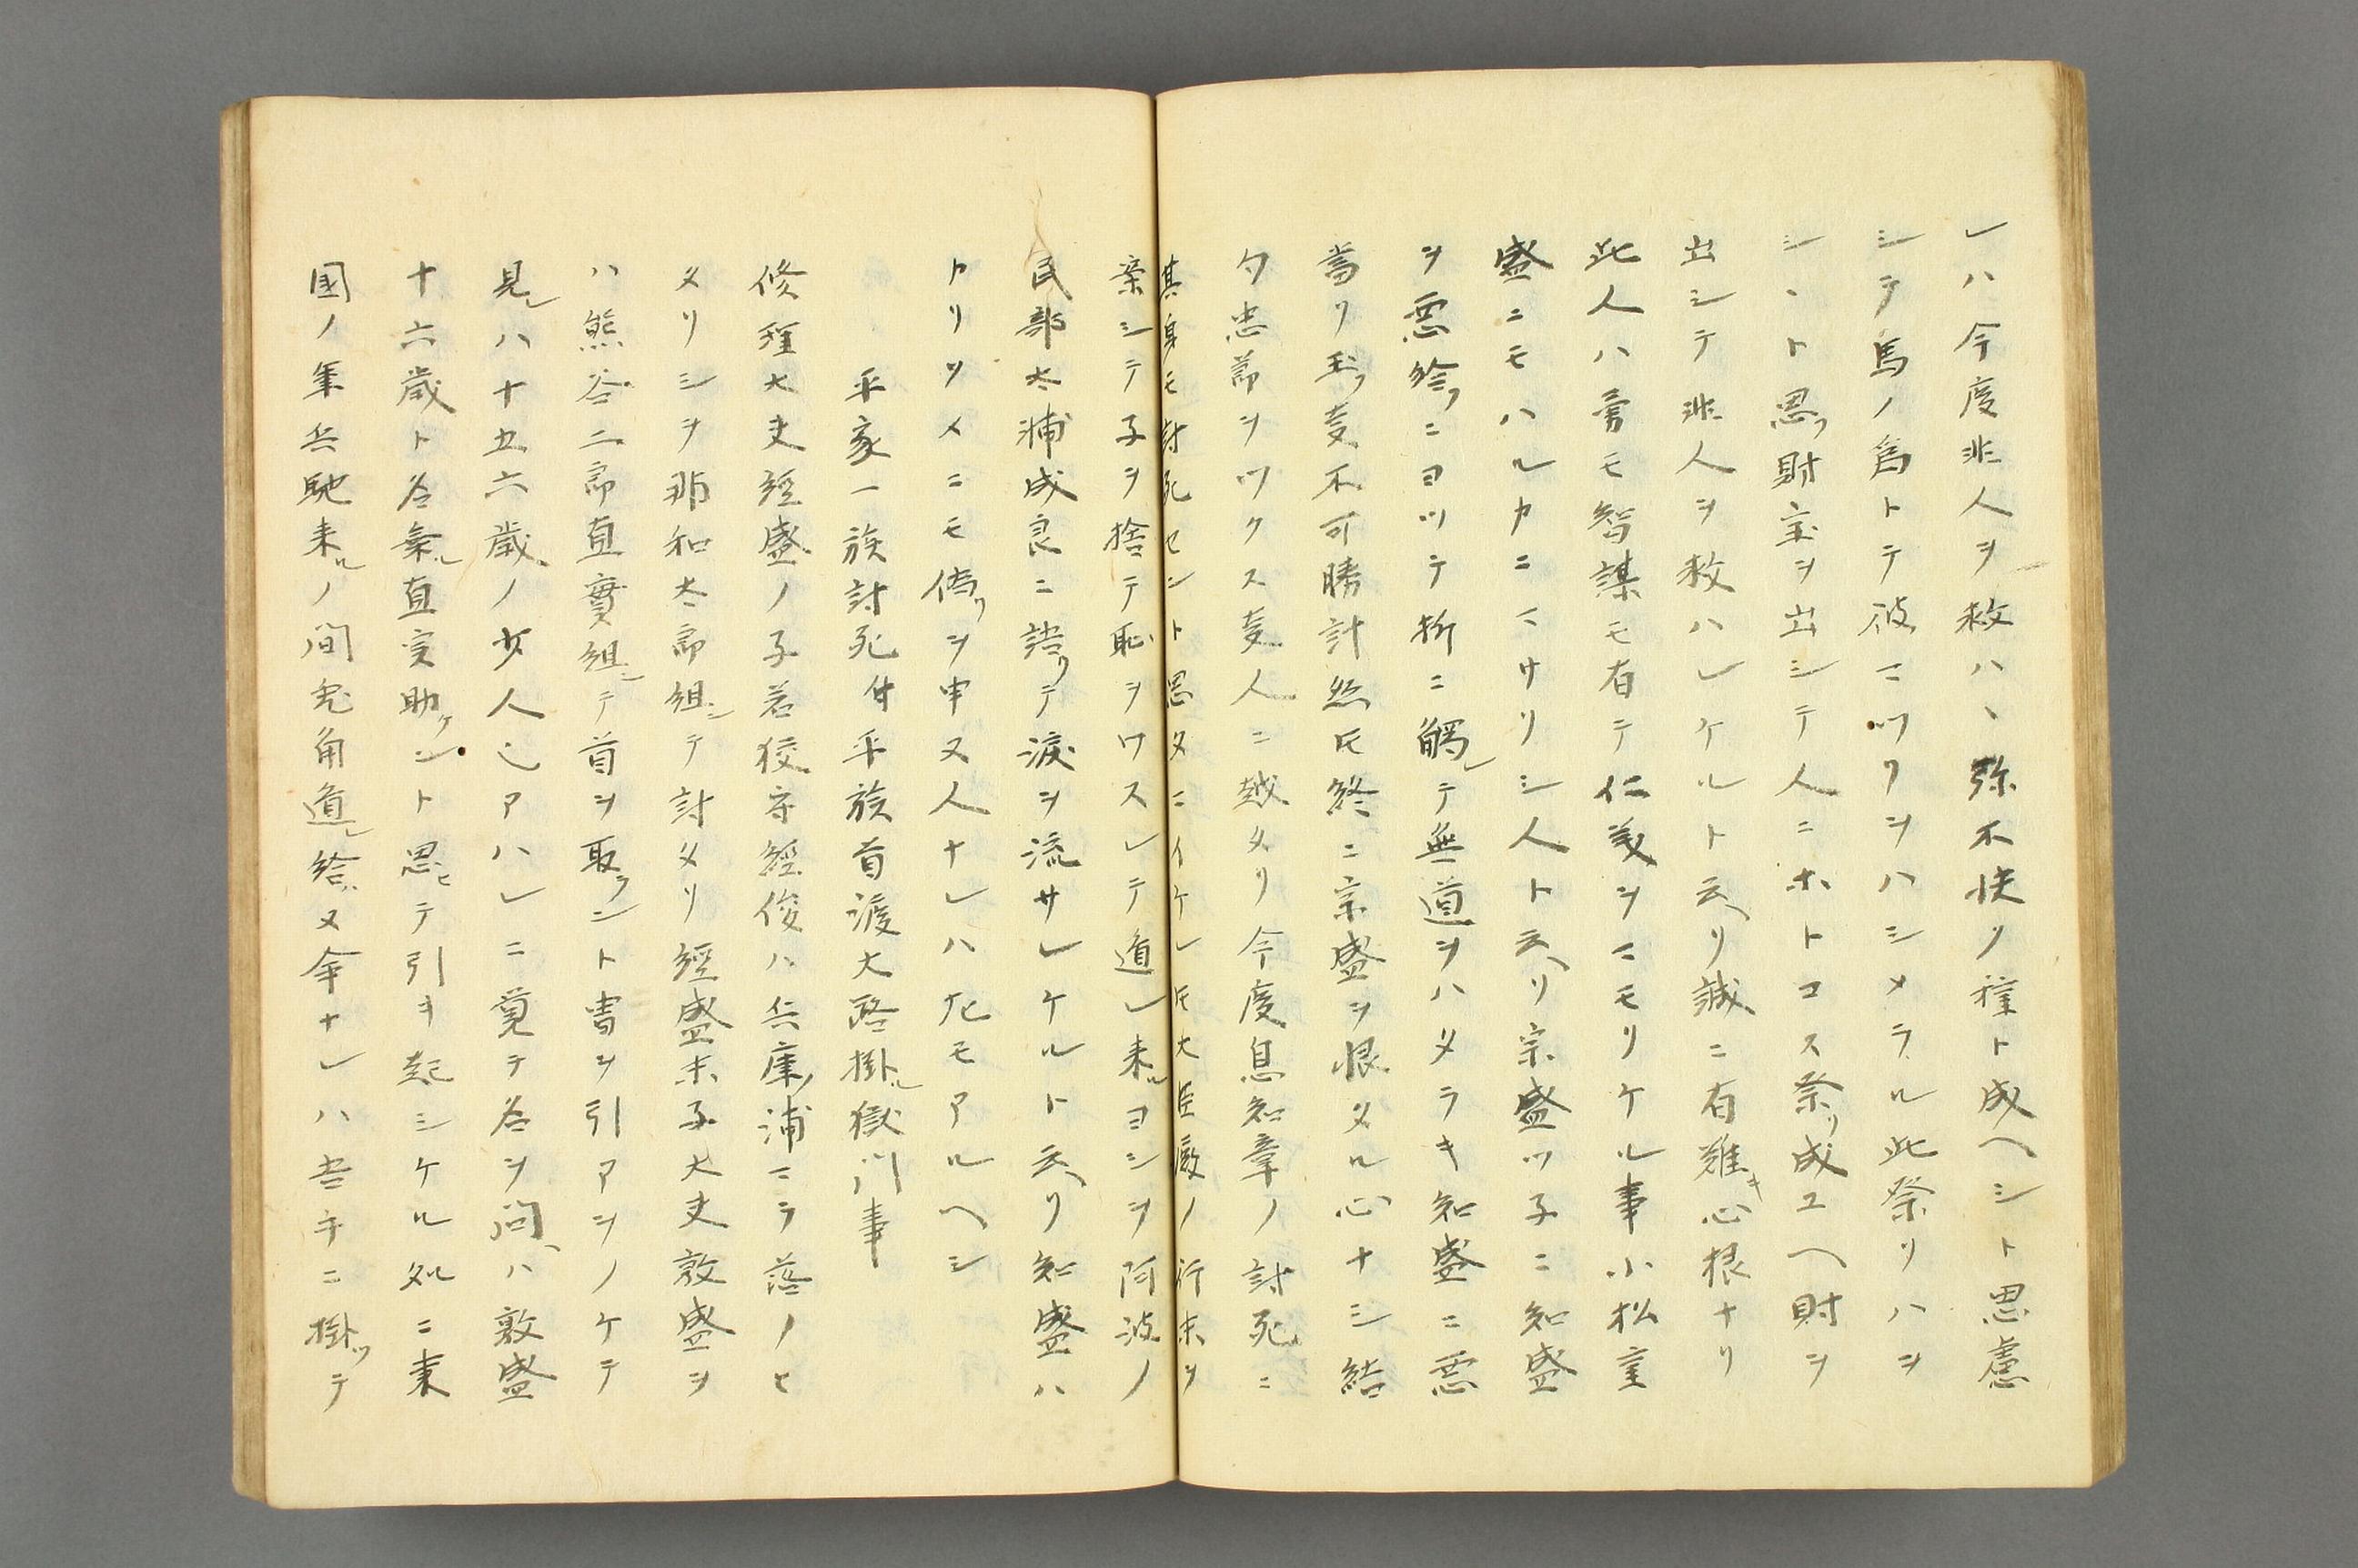 レハ今度非人ヲ救ハヽ弥不快ノ種ト成ヘシト思慮
シテ馬ノ為トテ彼ニツリヲハシメラル此祭リハヲ
シヽト思フ財宝ヲ出シテ人ニホトコス祭リ成ユヘ財ヲ
出シテ非人ヲ救ハレケルト云ヘリ誠ニ有難キ心根ナリ
此人ハ勇モ智謀モ有テ仁義ヲニモリケル事小松重
盛ニモハルカニマサリシ人ト云ヘリ宗盛ツ子ニ知盛
ヲ悪給フニヨツテ折ニ觸レテ無道ヲハタラキ知盛ニ悪
當リ玉フ叓不可勝計然𪜈終ニ宗盛ヲ恨タル心ナシ結
句忠節ヲツクス叓人ニ越タリ今度息知章ノ討死ニ
其身モ討死セント思タニイケレ𪜈大臣殿ノ行末ヲ
棄シテ子ヲ捨テ恥ヲワスレテ遁レ来ルヨシヲ阿波ノ
民部太浦成良ニ語リテ涙ヲ流サレケルト云ヘリ知盛ハ
カリソメニモ偽リヲ申ヌ人ナレハサモアルヘシ
平家一族討死付平族首渡大路掛ル獄門事
修理大夫經盛ノ子若狹守經俊ハ兵庫ノ浦ニラ落ノヒ
タリシヲ那和太郎組シテ討タリ經盛末子大夫敦盛ヲ
ハ熊谷二郎直實組シテ首ヲ取ラント胄ヲ引アヲノケテ
見レハ十五六歳ノ少人也アハレニ覚テ名ヲ問ヘハ敦盛
十六歳ト名乗ル直実助ケント思ヒテ引キ起シケル処ニ東
国ノ軍兵馳来ルノ間兎角遁レ給ハヌ命ナレハ吾手ニ掛ツテ